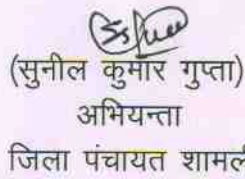 (सुनील कुमार गुप्ता)
अभियन्ता
जिला पंचायत शामली